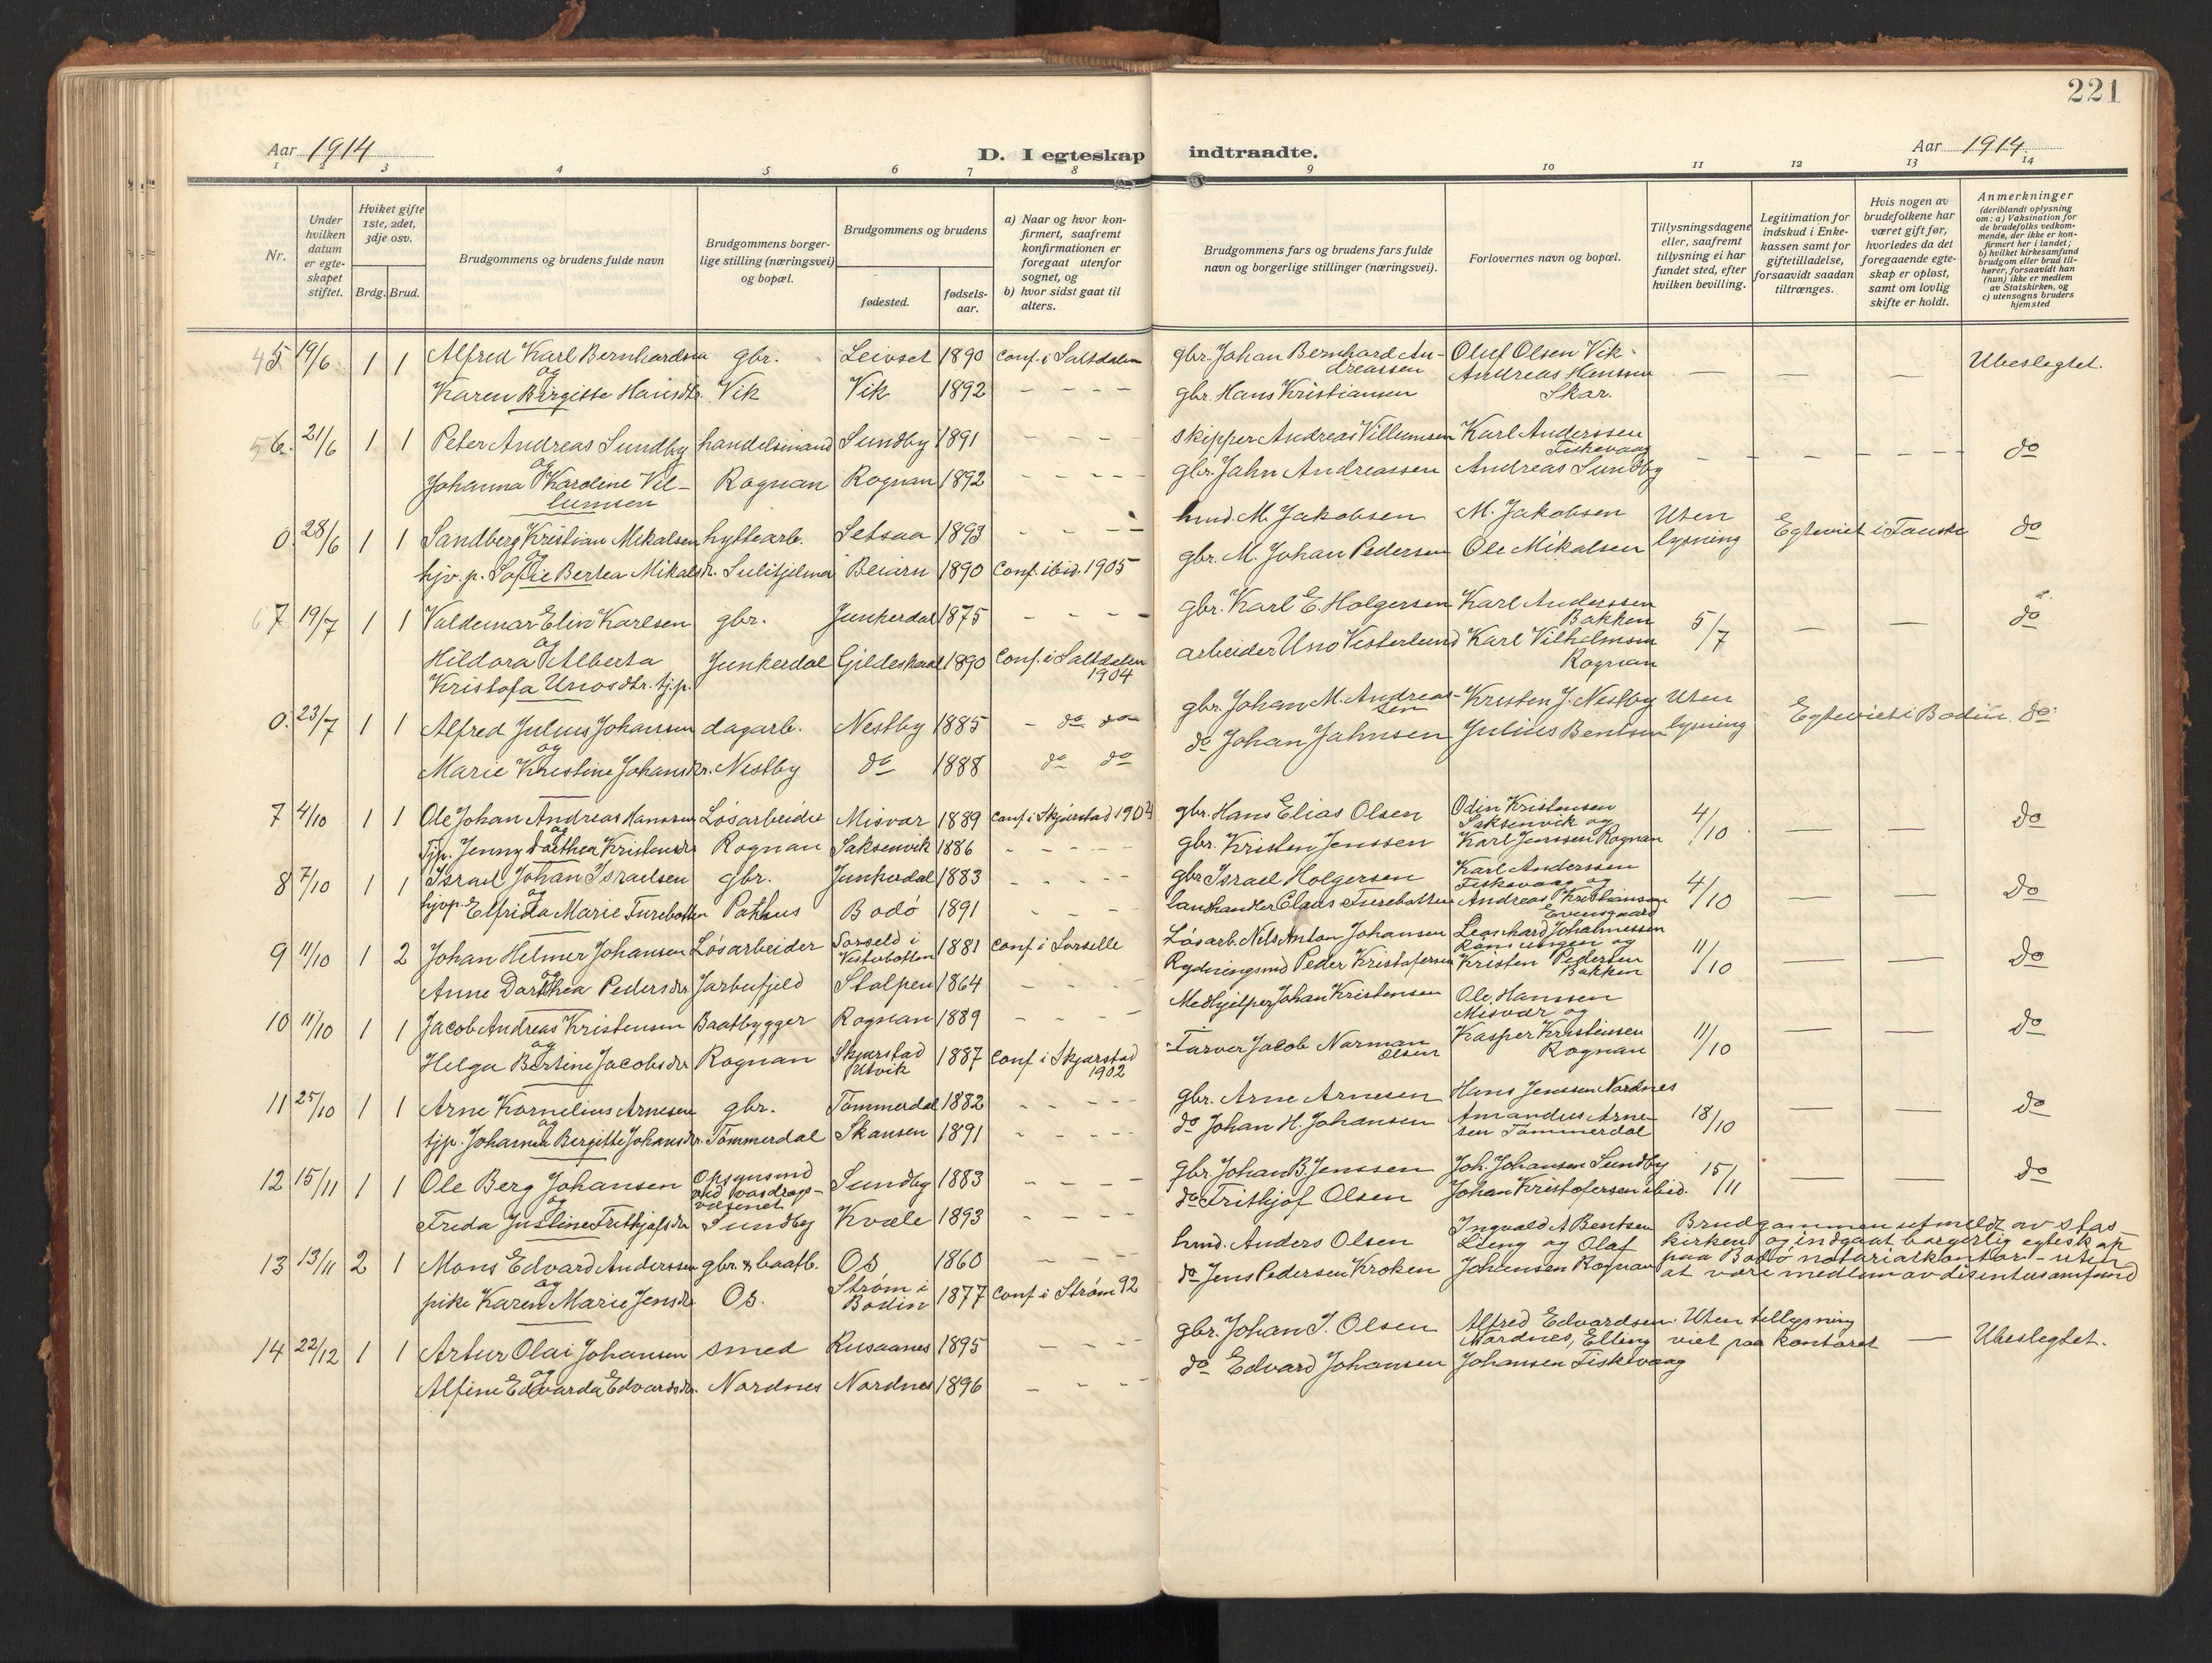 221
Aar 1914
D. I egteskap indtraadte.
Aar 1914.
1 2 3 4 5 6 7 8 9 10 11 12 13 14
Nr.
Under hvilken datum er egteskapet stiftet.
Hviket gifte 1ste, 2det, 3dje osv.
Brdg. Brud.
Brudgommens og brudens fulde navn
Brudgommens borgerlige stilling (næringsvei) og bopæl.
Brudgommens og brudens
fødested.
fødselsaar.
a) Naar og hvor konfirmert, saafremt konfirmationen er foregaat utenfor sognet, og
b) hvor sidst gaat til alters.
Brudgommens fars og brudens fars fulde navn og borgerlige stillinger (næringsvei).
Forlovernes navn og bopæl.
Tillysningsdagene eller, saafremt tillysning ei har fundet sted, efter hvilken bevilling.
Legitimation for indskud i Enkekassen samt for giftetilladelse, forsaavidt saadan tiltrænges.
Hvis nogen av brudefolkene har været gift før, hvorledes da det foregaaende egteskap er opløst, samt om lovlig skifte er holdt.
Anmerkninger (deriblandt oplysning om: a) Vaksination for de brudefolks vedkommende, der ikke er konfirmert her i landet; b) hvilket kirkesamfund brudgom eller brud tilhører, forsaavidt han (hun) ikke er medlem av Statskirken, og c) utensogns bruders hjemsted
5. 19/6 1 1 Alfred Karl Bernhardsen gbr. Leivset 1890 Conf. i Saltdalen gbr. Johan Bernhard Andreassen Oluf Olsen Vik — — — Ubeslegtet.
og
Karen Birgitte Hansdtr. Vik Vik 1892 - - - - gbr. Hans Kristiansen Andreas Hanssen Skar.
6. 21/6 1 1 Peter Andreas Sundby handelsmand Sundby 1891 - - - - skipper Andreas Villumsen Karl Anderssen Fiskevaag - - - - - - do
og
Johanna Karoline Villumsen Rognan Rognan 1892 - - - - gbr. Jahn Andreassen Andreas Sundby
0. 28/6 1 1 Sandberg Kristian Mikalsen hyttearb. Setsaa 1893 - - - hmd. M. Jakobsen M. Jakobsen Uten lysning Egteviet i Fauske do
og
hjv. p. Sofie Bertea Mikalsdtr. Sulitjelma Beiarn 1890 Conf. ibid. 1905 gbr. M. Johan Pedersen Ole Mikalsen
7 19/7 1 1 Valdemar Elin Karlsen gbr. Junkerdal 1875 - - - - gbr. Karl E. Holgersen Karl Anderssen Bakken 5/7 — — do
og
Hildora Alberta Kristofa Unosdtr. tj.p. Junkerdal Gildeskaal 1890 Conf. i Saltdalen 1904 arbeider Uno Vesterlund Karl Vilhelmsen Rognan
0. 23/7 1 1 Alfred Julius Johansen dagarb. Nestby 1885 - do do gbr. Johan M. Andreassen Kristen J. Nestby Uten lysning Egteviet i Bodin. do
og
Marie Kristine Johansdtr. Nestby do 1888 do do do Johan Jahnsen Julius Bentsen
7 4/10 1 1 Ole Johan Andreas Hanssen Løsarbeider Misvær 1889 Conf. i Skjerstad 1904 gbr. Hans Elias Olsen Odin Kristensen Saksenvik og 4/10 — — do
og
Tjp. Jenny Dorthea Kristensdtr Rognan Saksenvik 1886 - - - - gbr. Kristen Jenssen Karl Jenssen Rognan
8 7/10 1 1 Israel Johan Israelsen gbr. Junkerdal 1883 - - - - gbr. Israel Holgersen Karl Anderssen Fiskevaag og 4/10 — — do
og
hjvp. Elfrida Marie Turebotten Pothus Bodø 1891 - - - landhandler Claus Turebotten Andreas Kristiansen Evensgaard
9 11/10 1 2 Johan Helmer Johansen Løsarbeider Sorseld i Vesterbotten 1881 Conf. i Sorselle Løsarb. Nils Anton Johansen Leonhard Johannessen og 11/10 — — do
og
Anne Dorthea Pedersdtr Jarbufjeld Stolpen 1864 - - - - Rydningsmd Peder Kristofersen Kristen Pedersen Bakken
10 11/10 1 1 Jacob Andreas Kristensen Baatbygger Rognan 1889 - - - - Medhjelper Johan Kristensen Ole Hanssen Misvær og 11/10 — — do
og
Helga Bertine Jacobsdtr Rognan Skjerstad Utvik 1887 Conf i Skjerstad 1902 Farver Jacob Norman Olsen Kasper Kristensen Rognan
11 25/10 1 1 Arne Kornelius Arnesen gbr. Tømmerdal 1882 - - - - gbr. Arne Arnesen Hans Jenssen Nordnes 18/10 — — do
og
tjp. Johanna Bergitte Johansdtr. Tømmerdal Skansen 1891 - - - - do Johan H. Johansen Amandus Arnesen Tømmerdal
12 15/11 1 1 Ole Berg Johansen Opsynsmd ved vasdragsvæsenet Sundby 1883 - - - - gbr. Johan B. Jenssen Joh. Johansen Sundby 15/11 — — do
og
Freda Justine Frithjofsdtr Sundby Kvæle 1893 - - - - do Frithjof Olsen Johan Kristofersen ibid.
13 13/11 2 1 Mons Edvard Anderssen gbr. & baatb. Os 1860 - - - hmd. Anders Olsen Ingvald A Bentsen Lieng og Olaf Johansen Rognan
og
pike Karen Marie Jensdtr Os. Strøm i Bodin 1877 Conf i Strøm 92 do Jens Pedersen Kroken
Brudgommen utmeldt av stas
kirken og indgaat borgerlig egteskap
paa Bodø notariatkontor - uten
at være medlem av disentersamfund
14 22/12 1 1 Artur Olai Johansen smed Rusaanes 1895 - - - gbr. Johan J. Olsen Alfred Edvardsen Nordnes, Elling Johansen Fiskevaag Uten tillysning viet paa kontoret — Ubeslegtet.
og
Alfine Edvarda Edvardsdtr. Nordnes Nordnes 1896 - - - - do Edvard Johansen